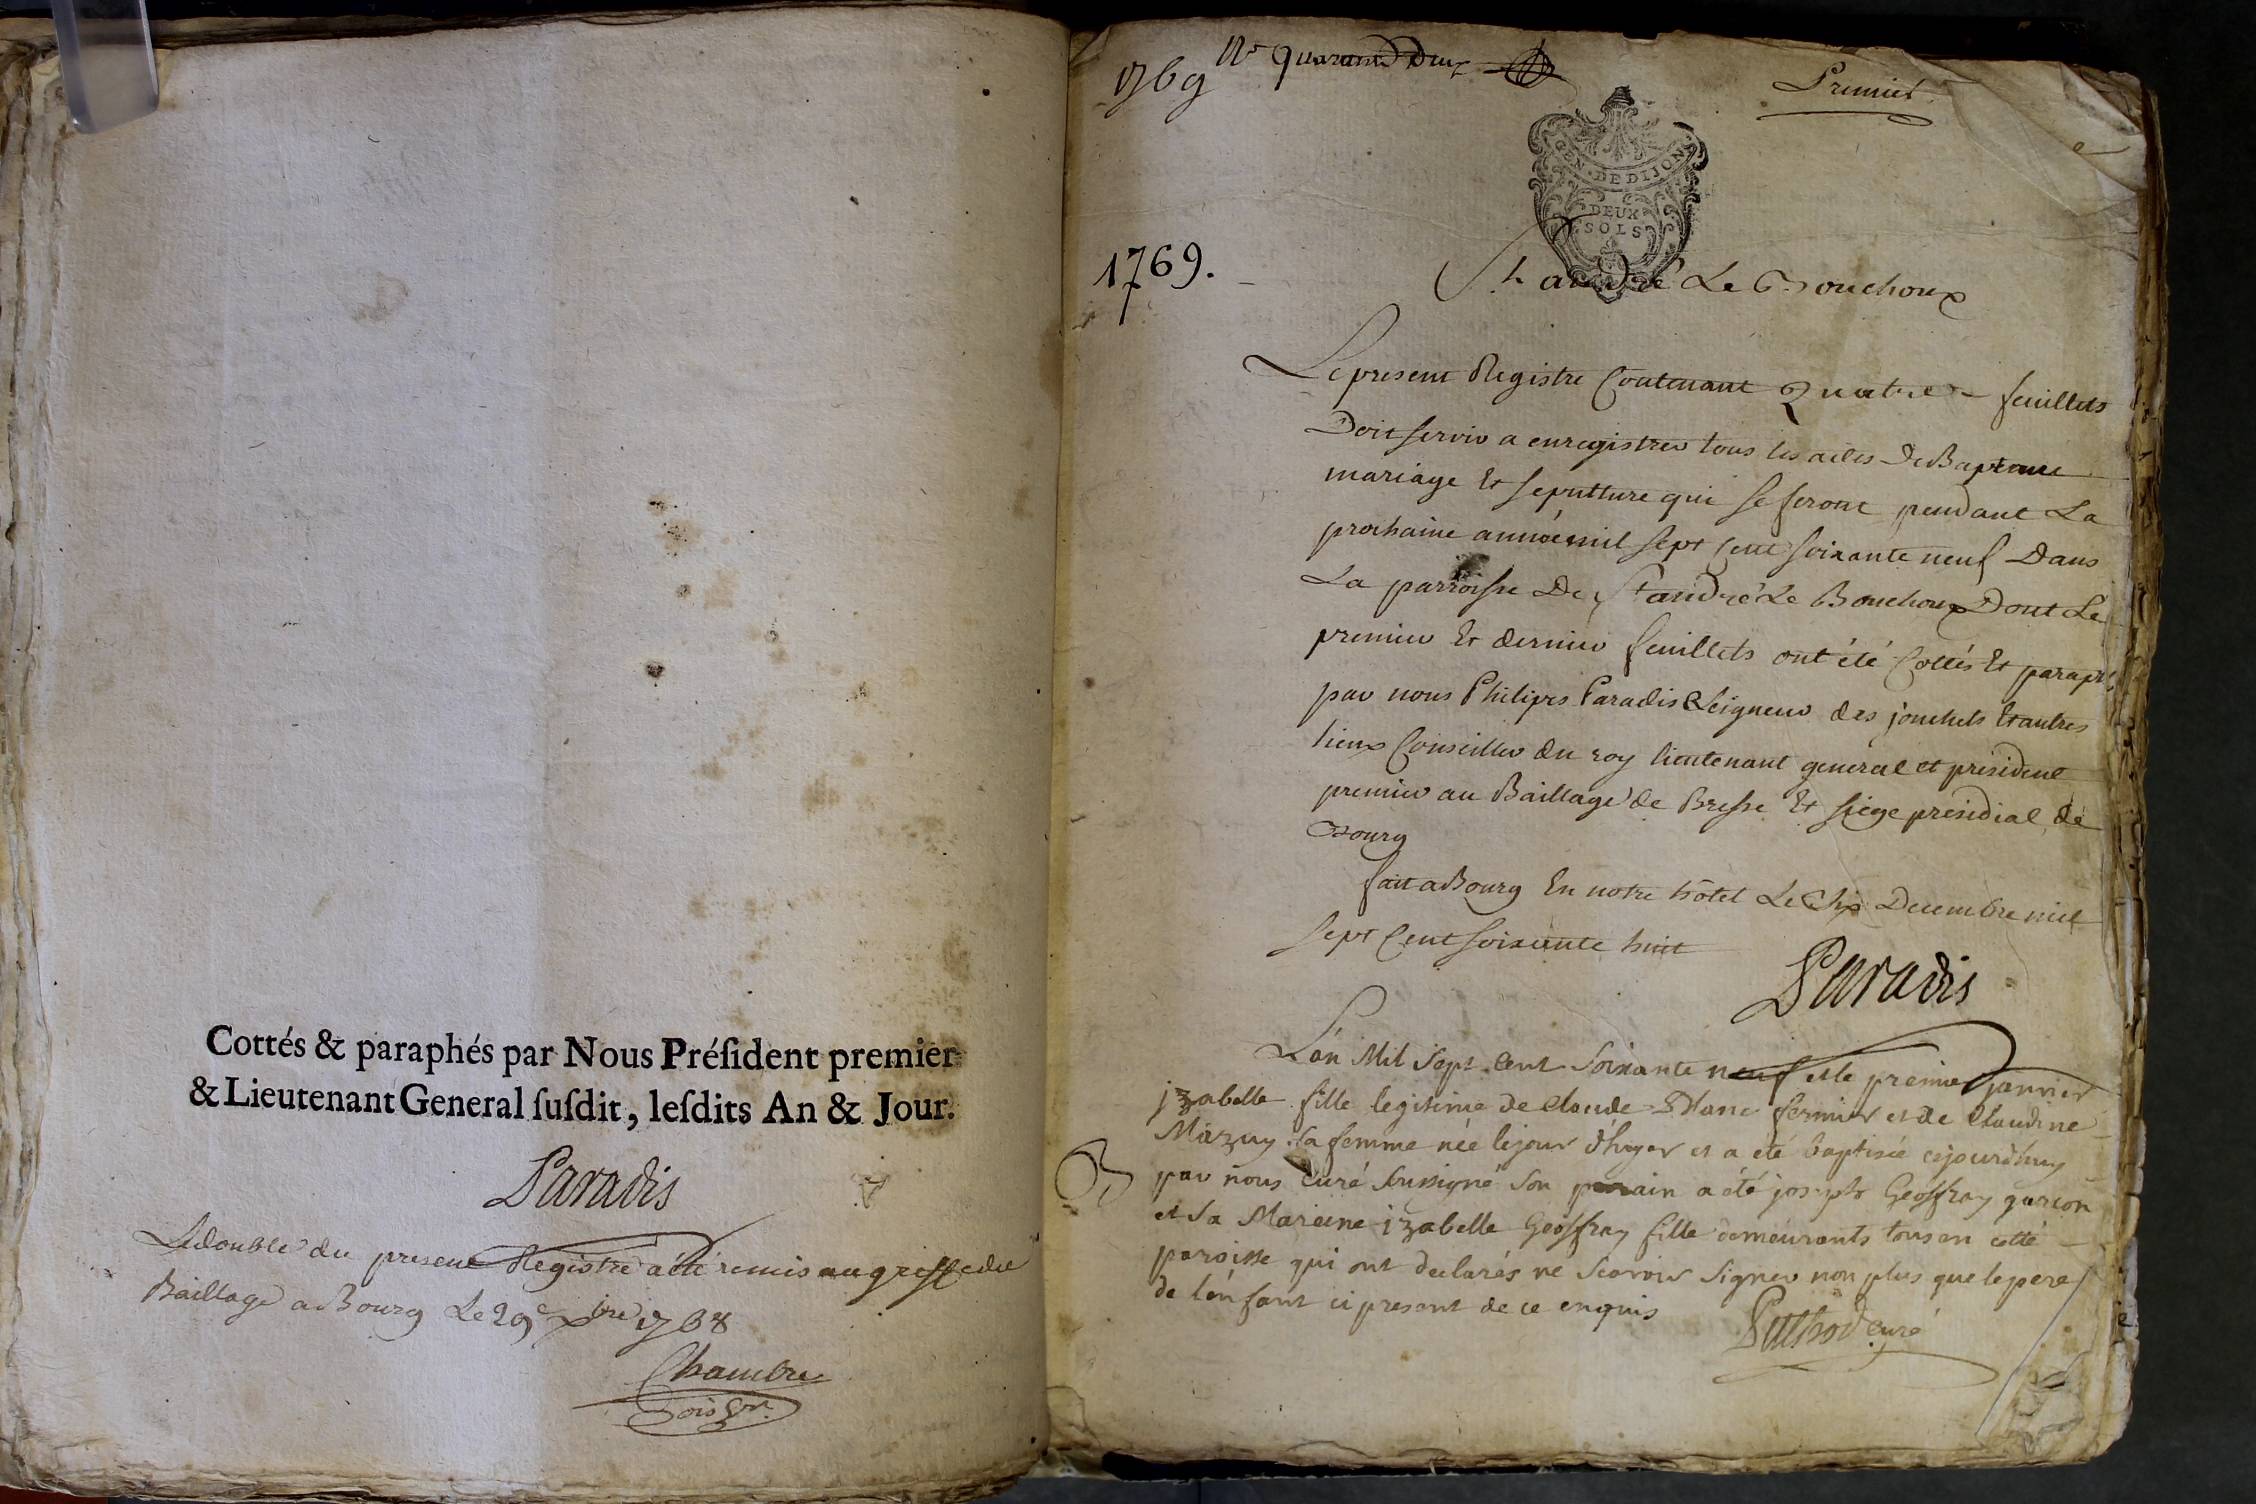 Cottés & paraphés par Nous Préſident premier
& Lieutenant General ſuſdit, leſdits An & Jour.
Paradis
Le double du present Registre a été remis au greffe du
Baillage a Bourg Le 29e xbre 1768
Chambre
1769
No quarante Deux
Premier
GEN. DE DIJON
DEUX
SOLS
1769.
St andré Le Bouchoux
Le present Registre Contenant Quatre feuillets
Doit servir a enregistrer tous les actes De Bapteme
mariage Et sepulture qui se feront pendant La
prochaine année mil sept Cent soixante neuf Dans
La parroisse De St andré Le Bouchoux Dont Le
premier Et dernier feuillets ont été Cottés Et paraphés
par nous Philipes Paradis Seigneur des jouchets Et autres
lieux Conseiller du roy lieutenant general et president
premier au Baillage de Bresse Et siege presidial de
Bourg
fait a Bourg En notre hôtel Le Decembre mil
sept Cent soixante huit
Paradis
L'án Mil sept cent soixante neuf et le premier janvier
jzabelle fille legitime de claude Blanc fermier et de Claudine
Mazuy sa femme née le jour d'hyer et a eté baptisée cejourdhuy
B
par nous Curé soussigné son parain a été joseph Geoffray garcon
et sa Mareine jzabelle Geoffray fille demeurants tous en cette
paroisse qui ont declarés ne scavoir signer non plus que le pere
de lénfant ci present de ce enquis
Puthod curé